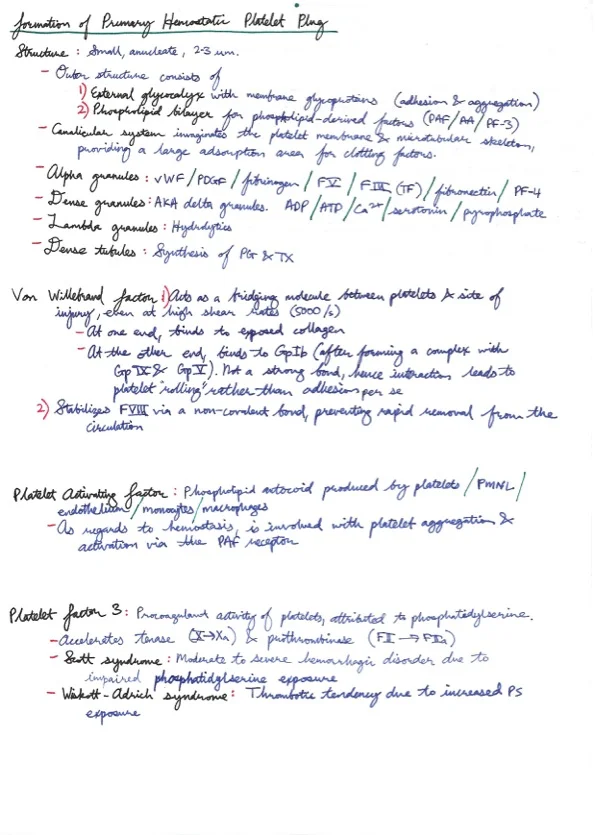 Formation of Primary Hemostatic Platelet Plug
Structure : Small, anucleate, 2-3 um.
- Outer structure consists of
1) External glycocalyx with membrane glycoproteins (adhesion & aggregation)
2) Phospholipid bilayer for phospholipid-derived factors (PAF/AA/PF-3)
- Canalicular system invaginates the platelet membrane & microtubular skeleton,
providing a large adsorption area for clotting factors.
- Alpha granules : vWF/PDGF/fibrinogen/FV/FIII (TF)/fibronectin/PF-4
- Dense granules: AKA delta granules. ADP/ATP/Ca2+/serotonin/pyrophosphate
- Lambda granules : Hydrolytics
- Dense tubules : Synthesis of PG & TX
Von Willebrand factor 1) Acts as a bridging molecule between platelets & site of
injury, even at high shear rates (5000/s)
- At one end, binds to exposed collagen
- At the other end, binds to GpIb (after forming a complex with
GpIX & GpV). Not a strong bond, hence interaction leads to
platelet "rolling" rather than adhesion per se
2) Stabilizes FVIII via a non-covalent bond, preventing rapid removal from the
circulation
Platelet Activating factor : Phospholipid autocoid produced by platelets/PMNL/
endothelium/monocytes/macrophages
- As regards to hemostasis, is involved with platelet aggregation &
activation via the PAF receptor
Platelet factor 3: Procoagulant activity of platelets, attributed to phosphatidylserine.
- Accelerates tenase (X→Xa) & prothrombinase (FII → FIIa)
- Scott syndrome : Moderate to severe hemorrhagic disorder due to
impaired phosphatidylserine exposure
- Wiskott-Adrich syndrome : Thrombotic tendency due to increased PS
exposure